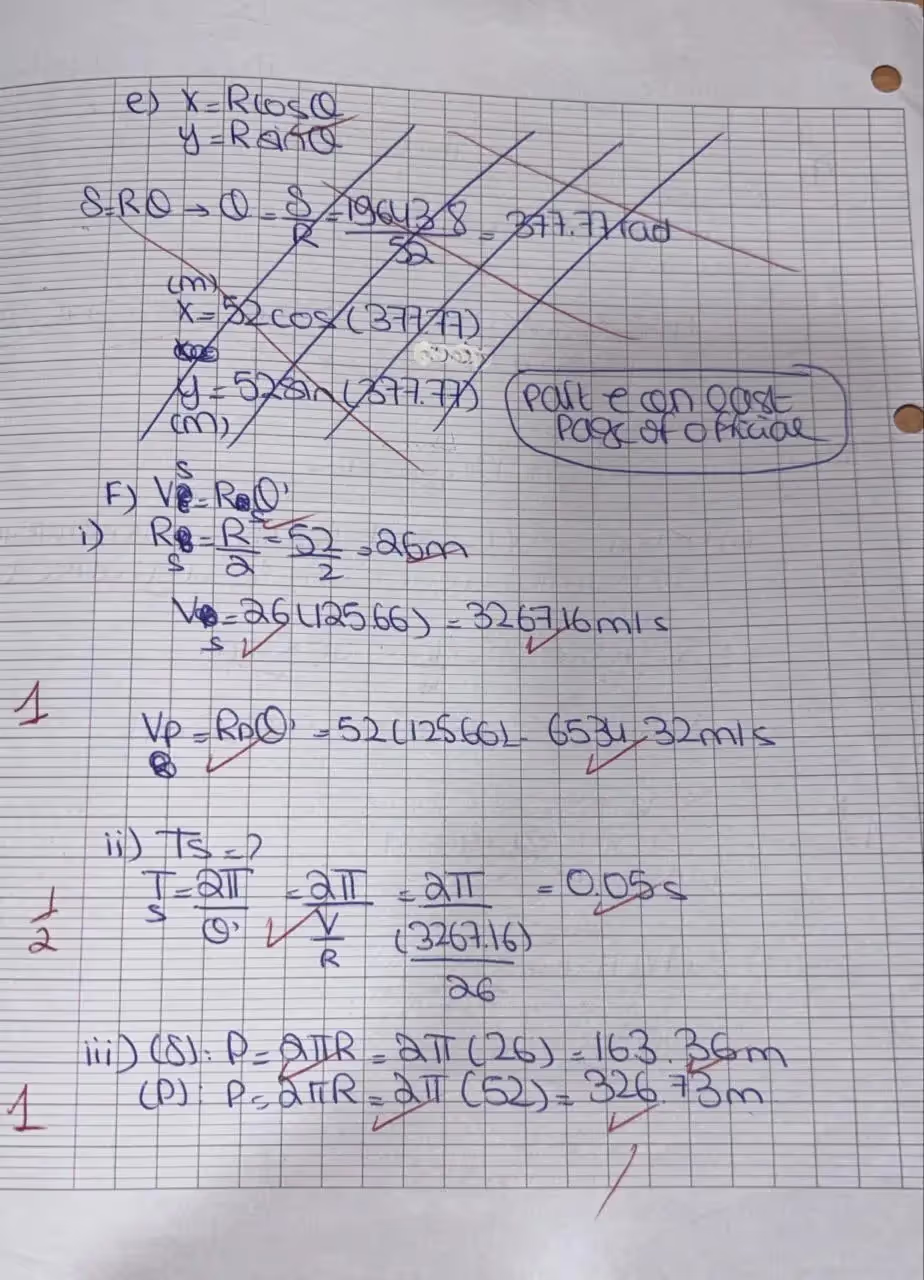 e) x = Rcosθ
y = Rsinθ
S=Rθ → θ = S/R = 19643.8/52 = 377.77rad
(m)
x = 52cos(377.77)
y = 52sin(377.77)
(m)
part e on last
page of official
F) Vs = Rθ'
i) Rs = R/2 = 52/2 = 26m
Vs = 26(125.66) = 3267.16m/s
1
Vp = Rpθ' = 52(125.66) = 6534.32m/s
ii) Ts = ?
Ts = 2π/θ' = 2π/(V/R) = 2π/((3267.16)/26) = 0.05s
1/2
iii) (S): P = 2πR = 2π(26) = 163.36m
(P): P = 2πR = 2π(52) = 326.73m
1